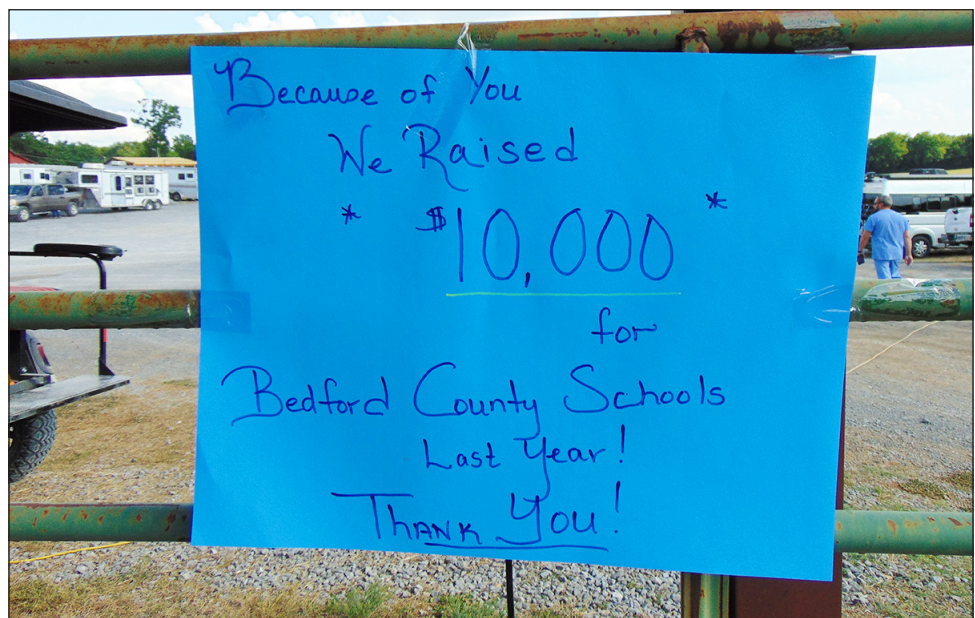 Because of You
We Raised
* $10,000 *
for
Bedford County Schools
Last Year!
Thank You!